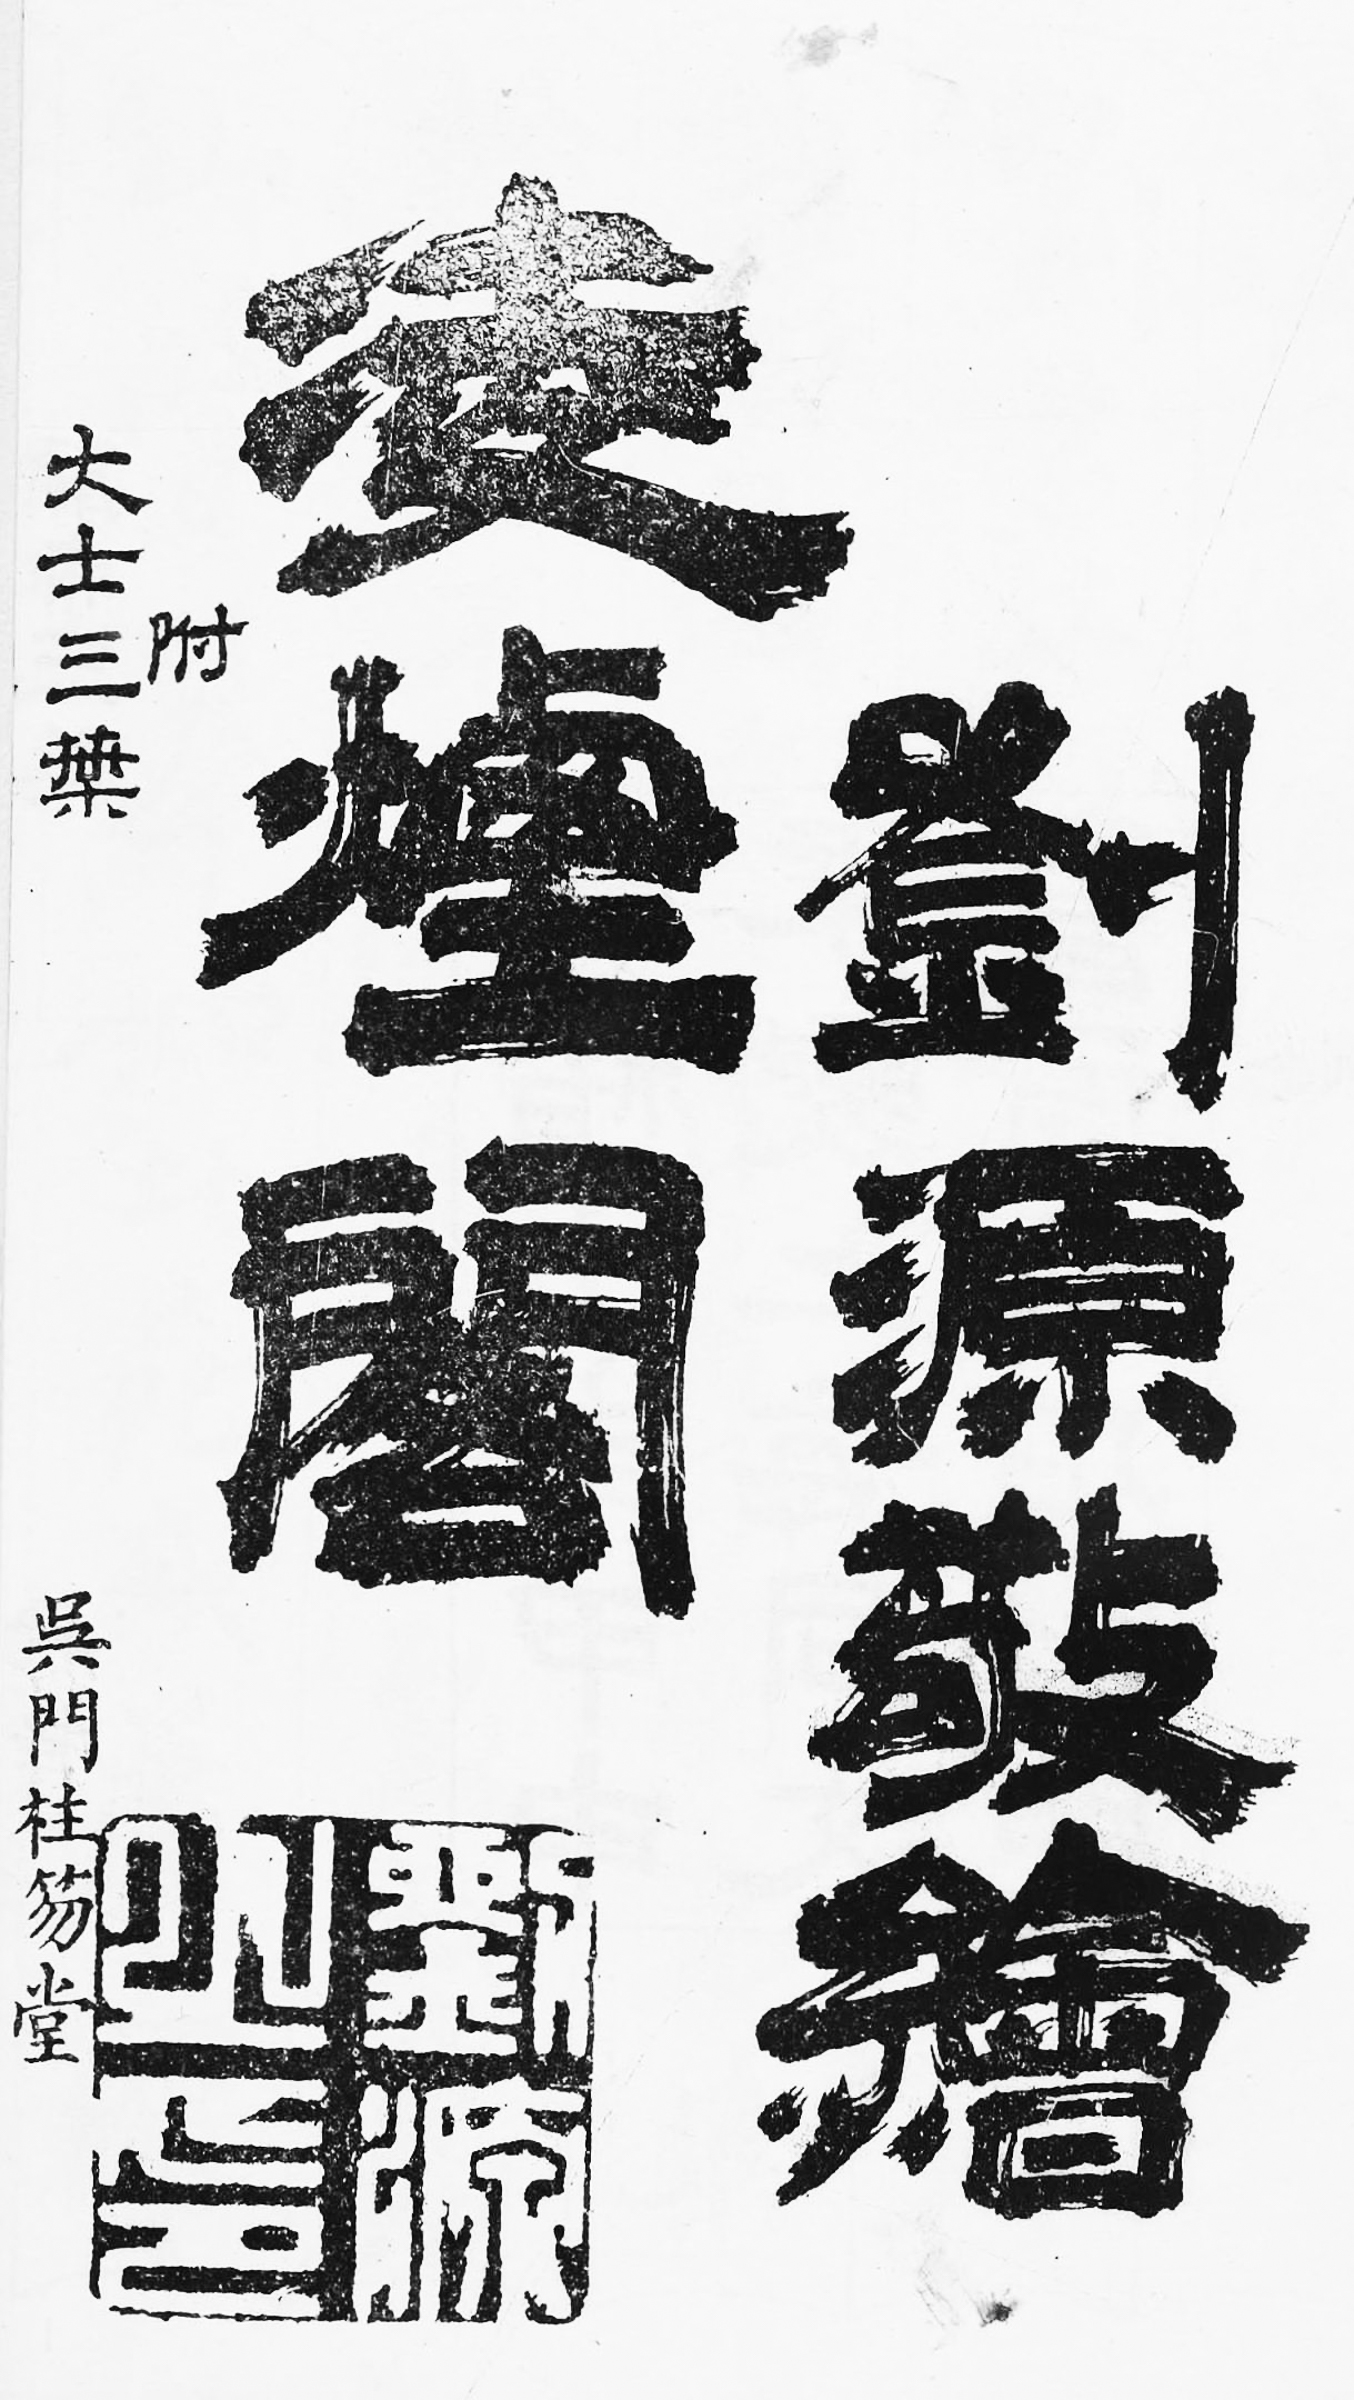 劉源敬繪
凌煙閣
附
大士三葉
吳門柱笏堂
劉源之印